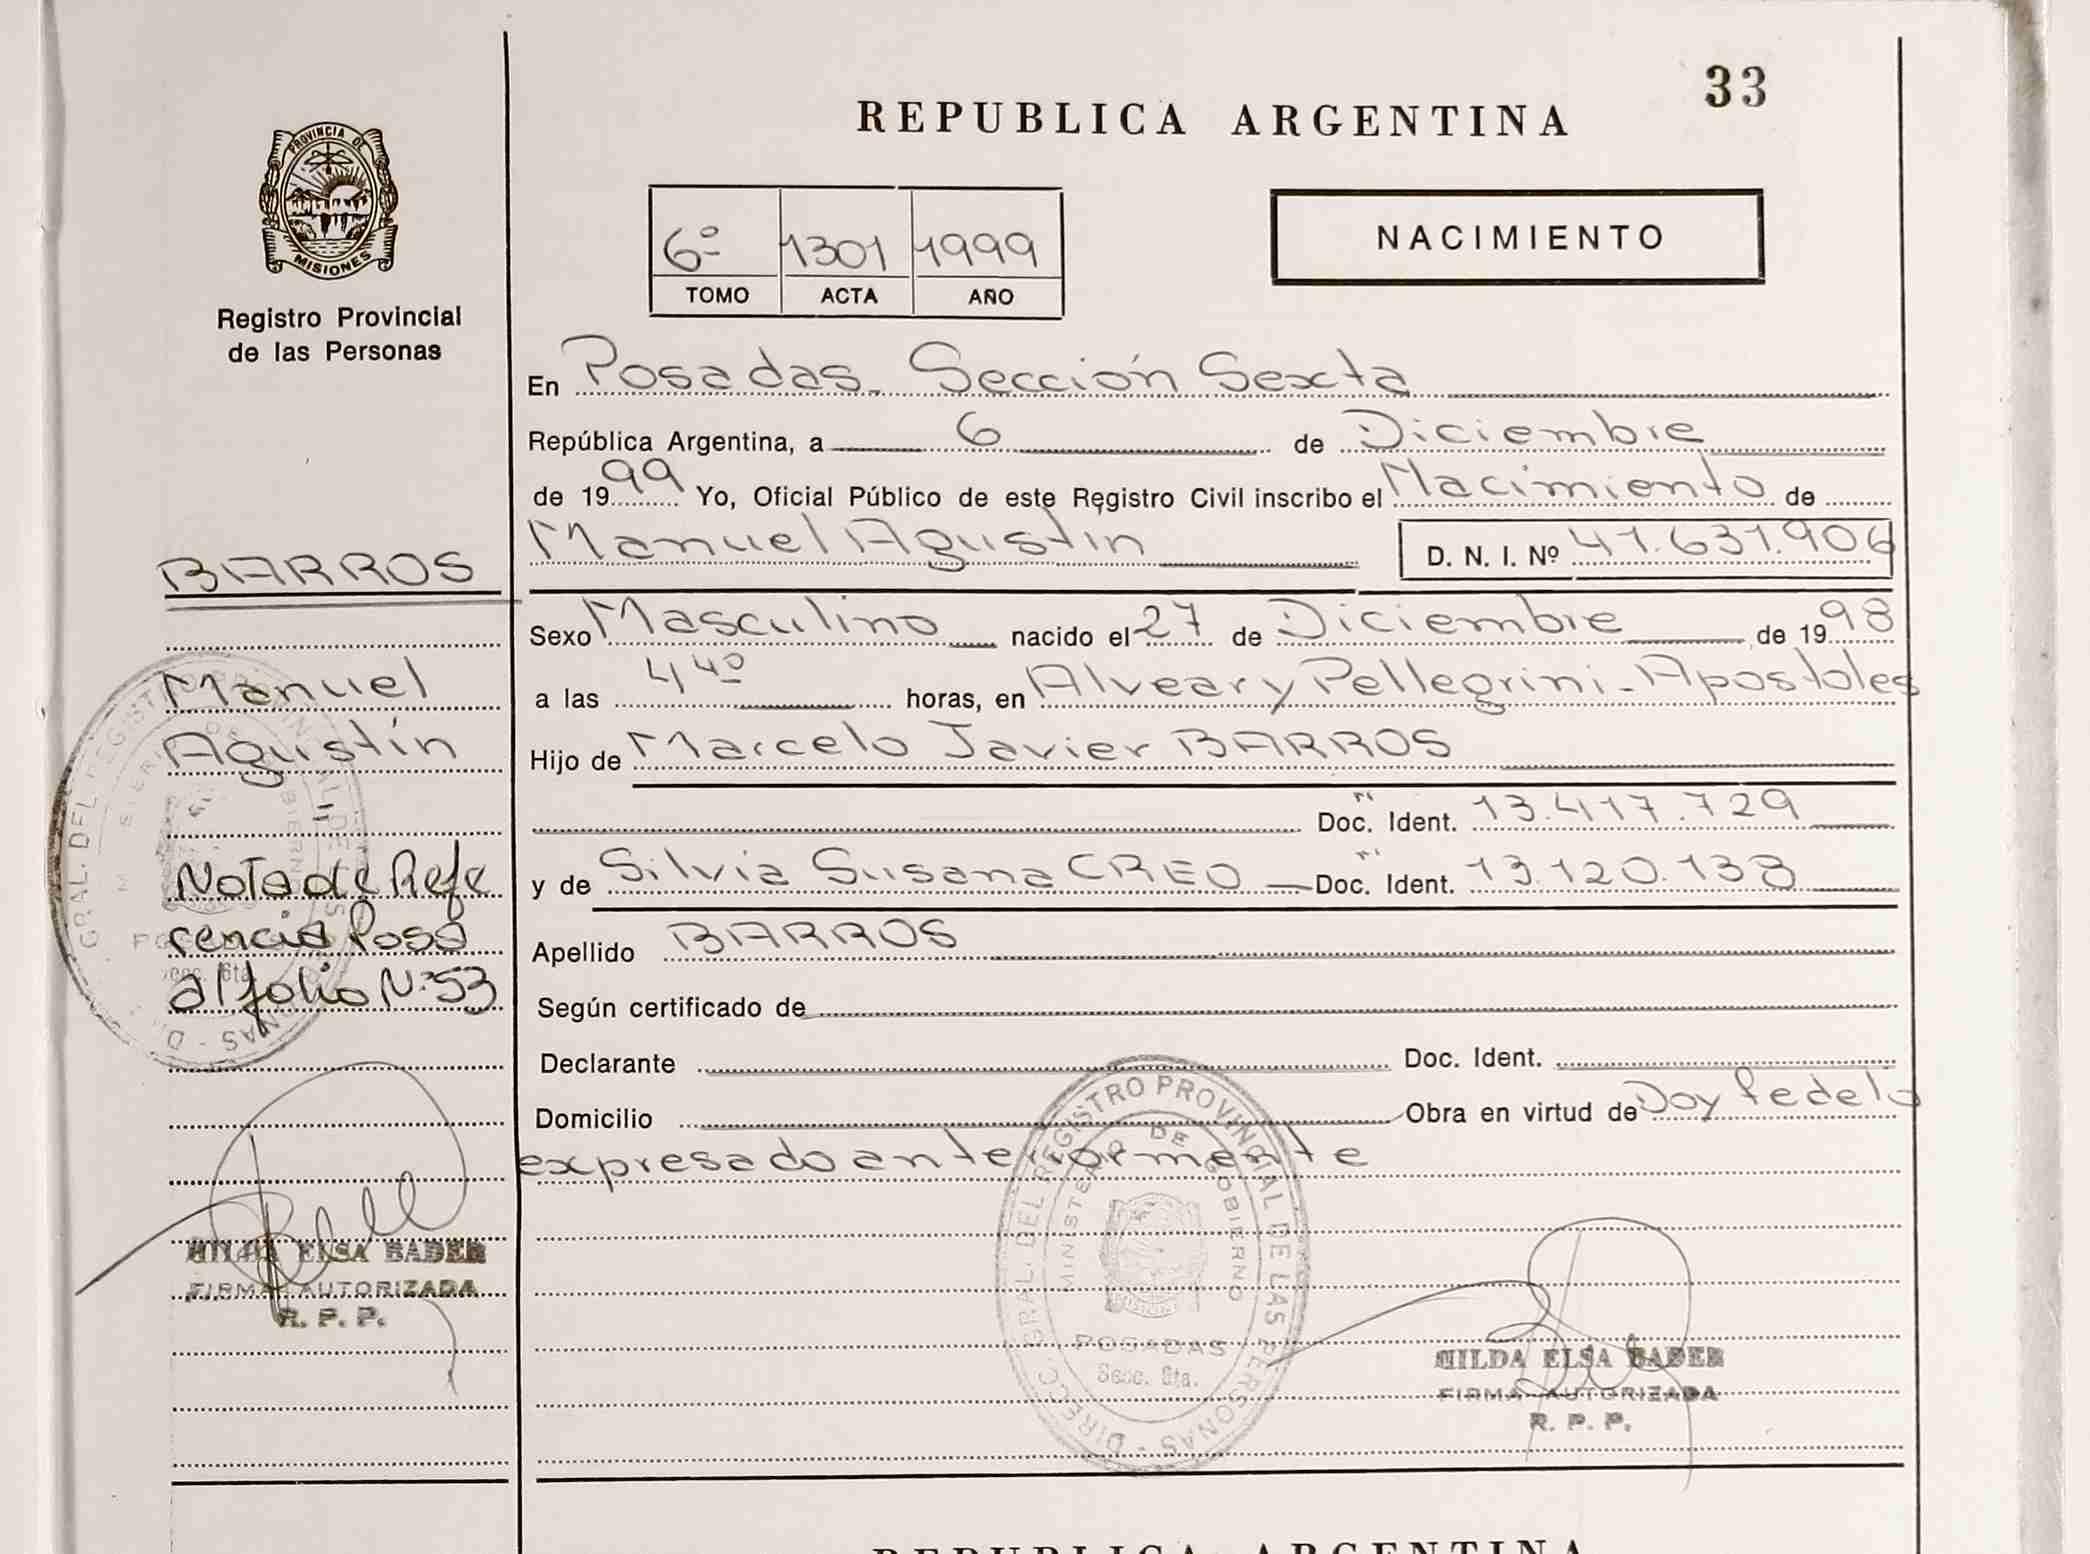 33
REPUBLICA ARGENTINA
PROVINCIA DE
MISIONES
Registro Provincial
de las Personas
6º 1301 1999
TOMO ACTA AÑO
NACIMIENTO
En Posadas. Sección Sexta
República Argentina, a 6 de Diciembre
de 1999 Yo, Oficial Público de este Registro Civil inscribo el Nacimiento de
Manuel Agustin D. N. I. Nº 41.631.906
Sexo Masculino nacido el 27 de Diciembre de 1998
a las 4 40 horas, en Alvear y Pellegrini - Apostoles
Hijo de Marcelo Javier BARROS
Doc. Ident. 13.417.729
y de Silvia Susana CREO Doc. Ident. 13.120.138
Apellido BARROS
Según certificado de
Declarante Doc. Ident.
Domicilio Obra en virtud de Doy fe de lo
expresado anteriormente
BARROS
Manuel
Agustín
Nota de Refe
rencia Pasa
al folio Nº 53
HILDA ELSA BADER
FIRMA AUTORIZADA
R. P. P.
DIRECC. GRAL. DEL REGISTRO PROVINCIAL DE LAS PERSONAS
MINISTERIO DE GOBIERNO
POSADAS
Secc. 6ta.
HILDA ELSA BADER
FIRMA AUTORIZADA
R. P. P.
REPUBLICA ARGENTINA